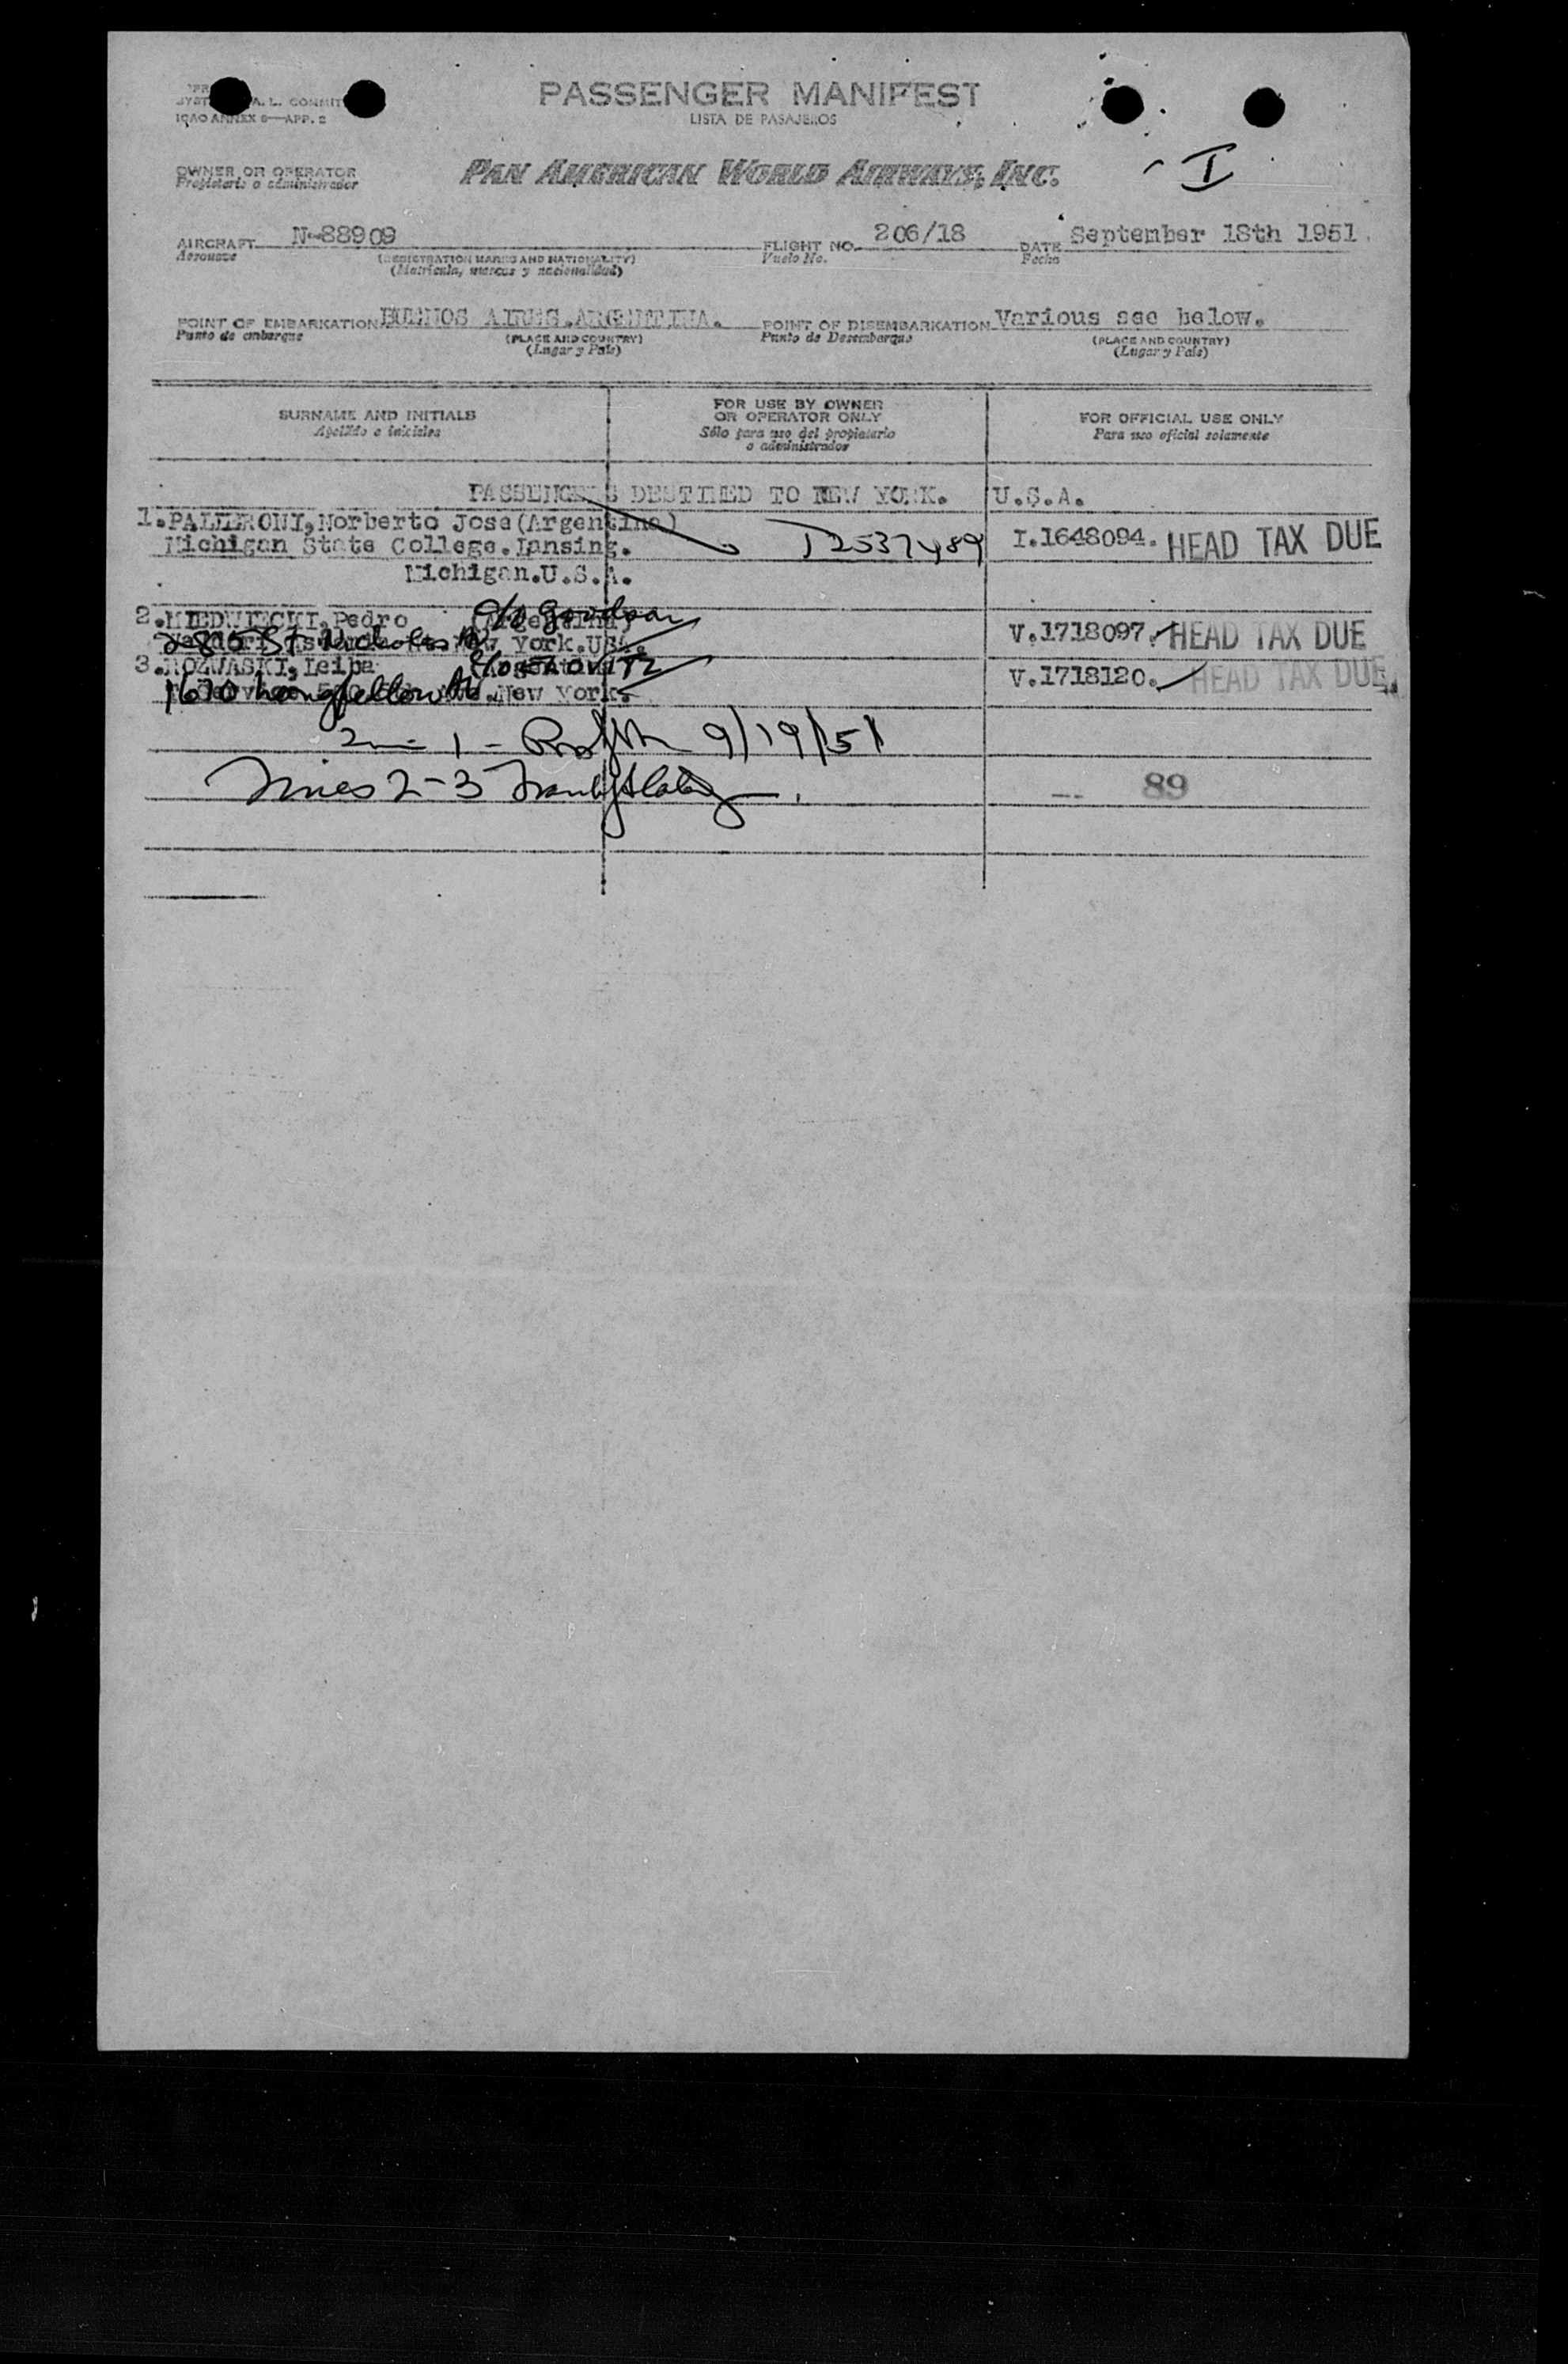 PASSENGER MANIFEST
LISTA DE PASAJEROS
A. L. COMMIT
ICAO ANNEX 9—APP. 2
OWNER OR OPERATOR
Propietario o administrador
PAN AMERICAN WORLD AIRWAYS, INC.
I
AIRCRAFT N-88909
Aeronave
(REGISTRATION MARKS AND NATIONALITY)
(Matrícula, marcas y nacionalidad)
FLIGHT NO. 206/18
Vuelo No.
DATE September 18th 1951.
Fecha
POINT OF EMBARKATION BUENOS AIRES.ARGENTINA.
Punto de embarque
(PLACE AND COUNTRY)
(Lugar y País)
POINT OF DISEMBARKATION Various see below.
Punto de Desembarque
(PLACE AND COUNTRY)
(Lugar y País)
SURNAME AND INITIALS
Apellido e iniciales
FOR USE BY OWNER
OR OPERATOR ONLY
Sólo para uso del propietario
o administrador
FOR OFFICIAL USE ONLY
Para uso oficial solamente
PASSENGERS DESTINED TO NEW YORK. U.S.A.
1.PALLERONI,Norberto Jose(Argentina)
Michigan State College.Lansing. I2537489 I.1648094. HEAD TAX DUE
Michigan.U.S.A.
2.MIEDWIECKI,Pedro (Argentina) c/o
St Nicholas New York.USA. V.1718097. HEAD TAX DUE
3.ROZWASKI,Leiba c/o
1670 Longfellow Ave New York. V.1718120. HEAD TAX DUE.
1 - 9/19/51
Lines 2-3
89